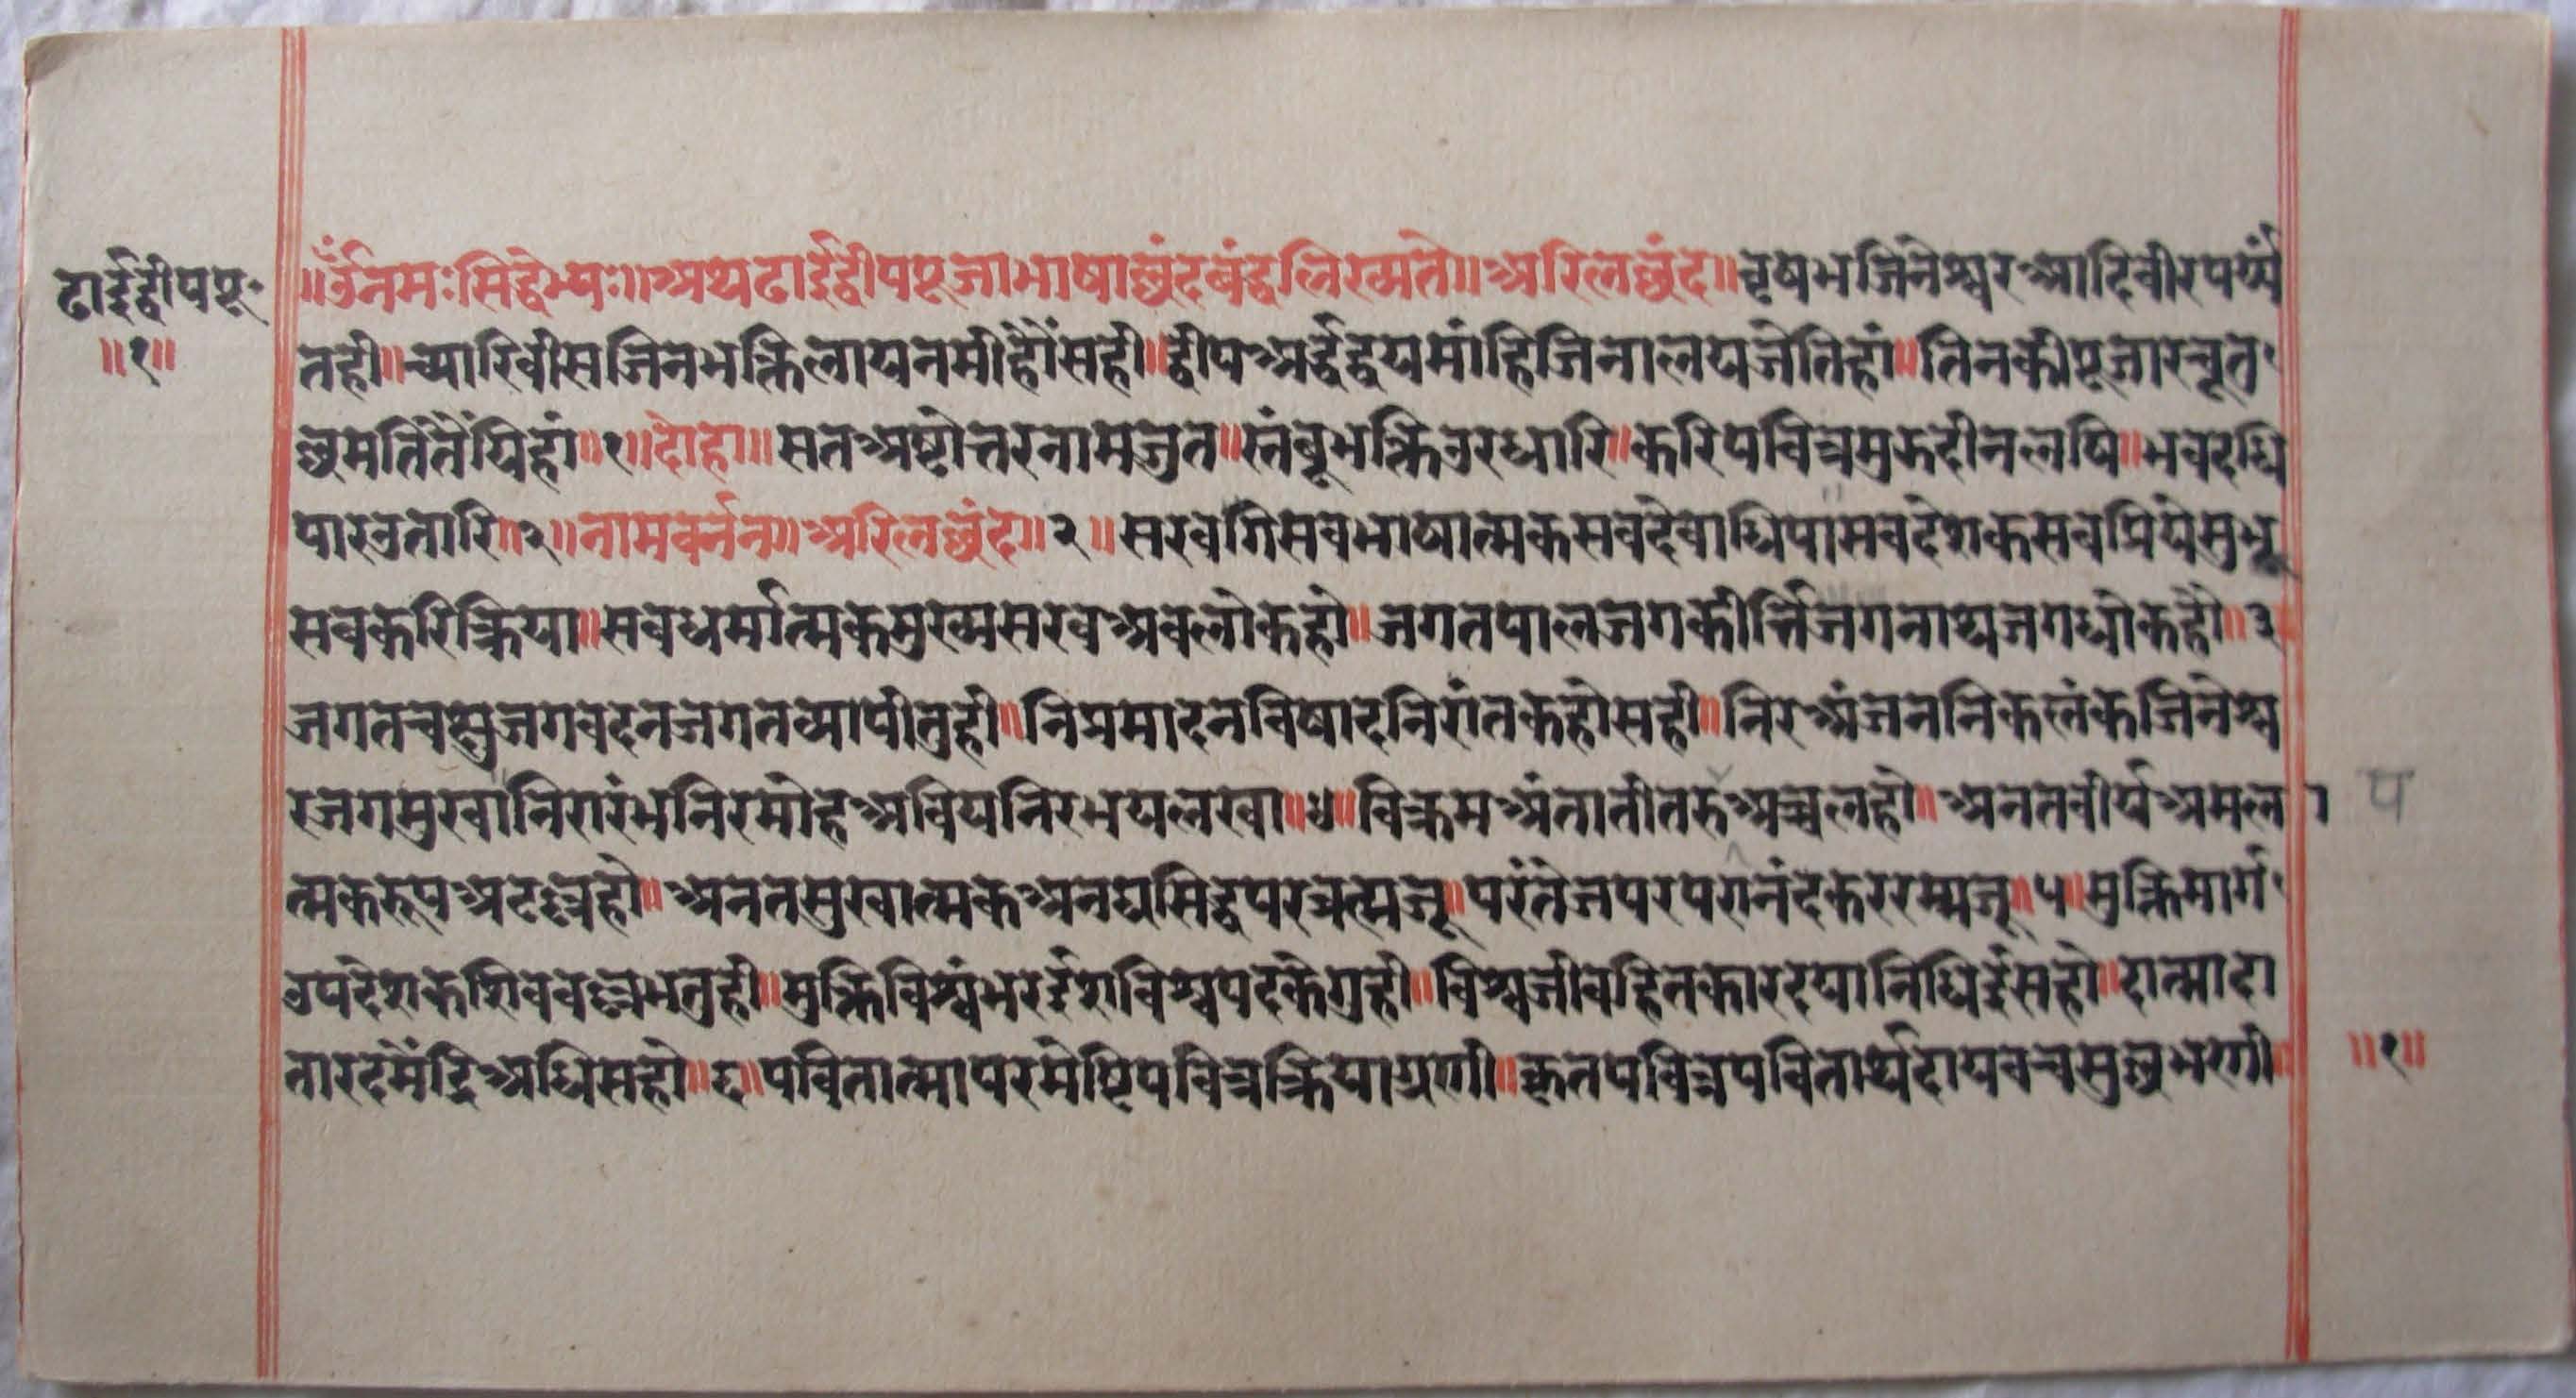 ढाईद्वीपपू॰
॥१॥
॥ॐनमःसिद्धेभ्यः॥अथढाईद्वीपपूजाभाषाछंदबंद्धलिख्यते॥अरिलछंद॥वृषभजिनेश्वरआदिवीरपर्य्यं
तही॥च्यारिवीसजिनभक्तिलायनमीहौंसही॥द्वीपअर्द्धद्वयमांहिजिनालयजेतिहां॥तिनकीपूजारचूत
छुमतिंतैंयिहां॥१॥दोहा॥सतअष्टोत्तरनामजुत॥स्तंवूभक्तिउरधारि॥करिपवित्रमुझदीनलषि॥भवदधि
पारउतारि॥२॥नामवर्नन॥अरिलछंद॥२॥सरवगिसवभाषात्मकसवदेवाधिपासवदेशकसवप्रियेसुभू
सवकरिक्रिया॥सवधर्मात्मकमुख्यसरवअवलोकहो॥जगतपालजगकीर्त्तिजगनाथजगधोकहौ॥३
जगतचक्षुजगवदनजगतव्यापीतुही॥निप्रमादनविषादनिरांतकहोसही॥निरअंजननिकलंकजिनेश्व
रजगमुखानिरारंभनिरमोहअवियनिरभयलखा॥४॥विक्रमअंतातीतरुअचलहो॥अनतवीर्यअमल।
प
त्मकरूपअटछहो॥अनतसुखात्मकअनघसिद्धपरत्मजू॥परंतेजपरपरानंदकररम्यजू॥५॥मुक्तिमार्ग
उपदेशकेशिववल्लभतुही॥मुक्तिविश्वंभरईशविश्वपदकेगुही॥विश्वजीवहितकारदयानिधिईसहो॥दात्मादा
तारदमेंद्रिअधिसहो॥६॥पवितात्मापरमेष्टिपवित्रक्रियाग्रणी॥कृतपवित्रपवितार्थदायवचसुछभणी॥
॥१॥